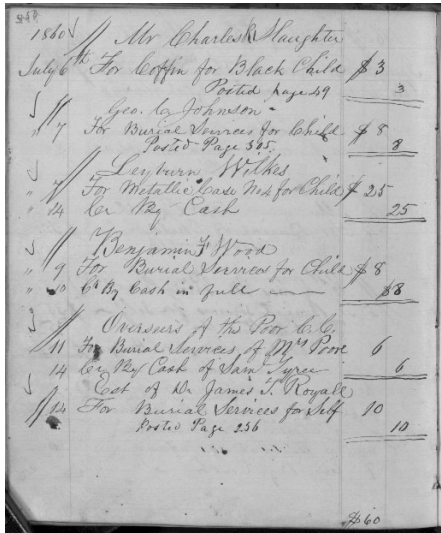 1860 Mr Charles R Slaughter
July 6th For Coffin for Black Child $3
Posted page 49 3
Geo. Johnson
" 7 For Burial Services for Child $8
Posted Page 8
Leyburn Wilkes
" For Metallic Case No 4 for Child $25
" 14 Cr By Cash 25
Benjamin F Wood
" 9 For Burial Services for Child $8
" 10 Cr By Cash in full $8
Overseers of the Poor C.C.
11 For Burial Services of Mrs Poore 6
14 Cr By Cash of Saml Tyree 6
Est of Dr James T. Royall
12 For Burial Services for Self 10
Posted Page 256 10
$60